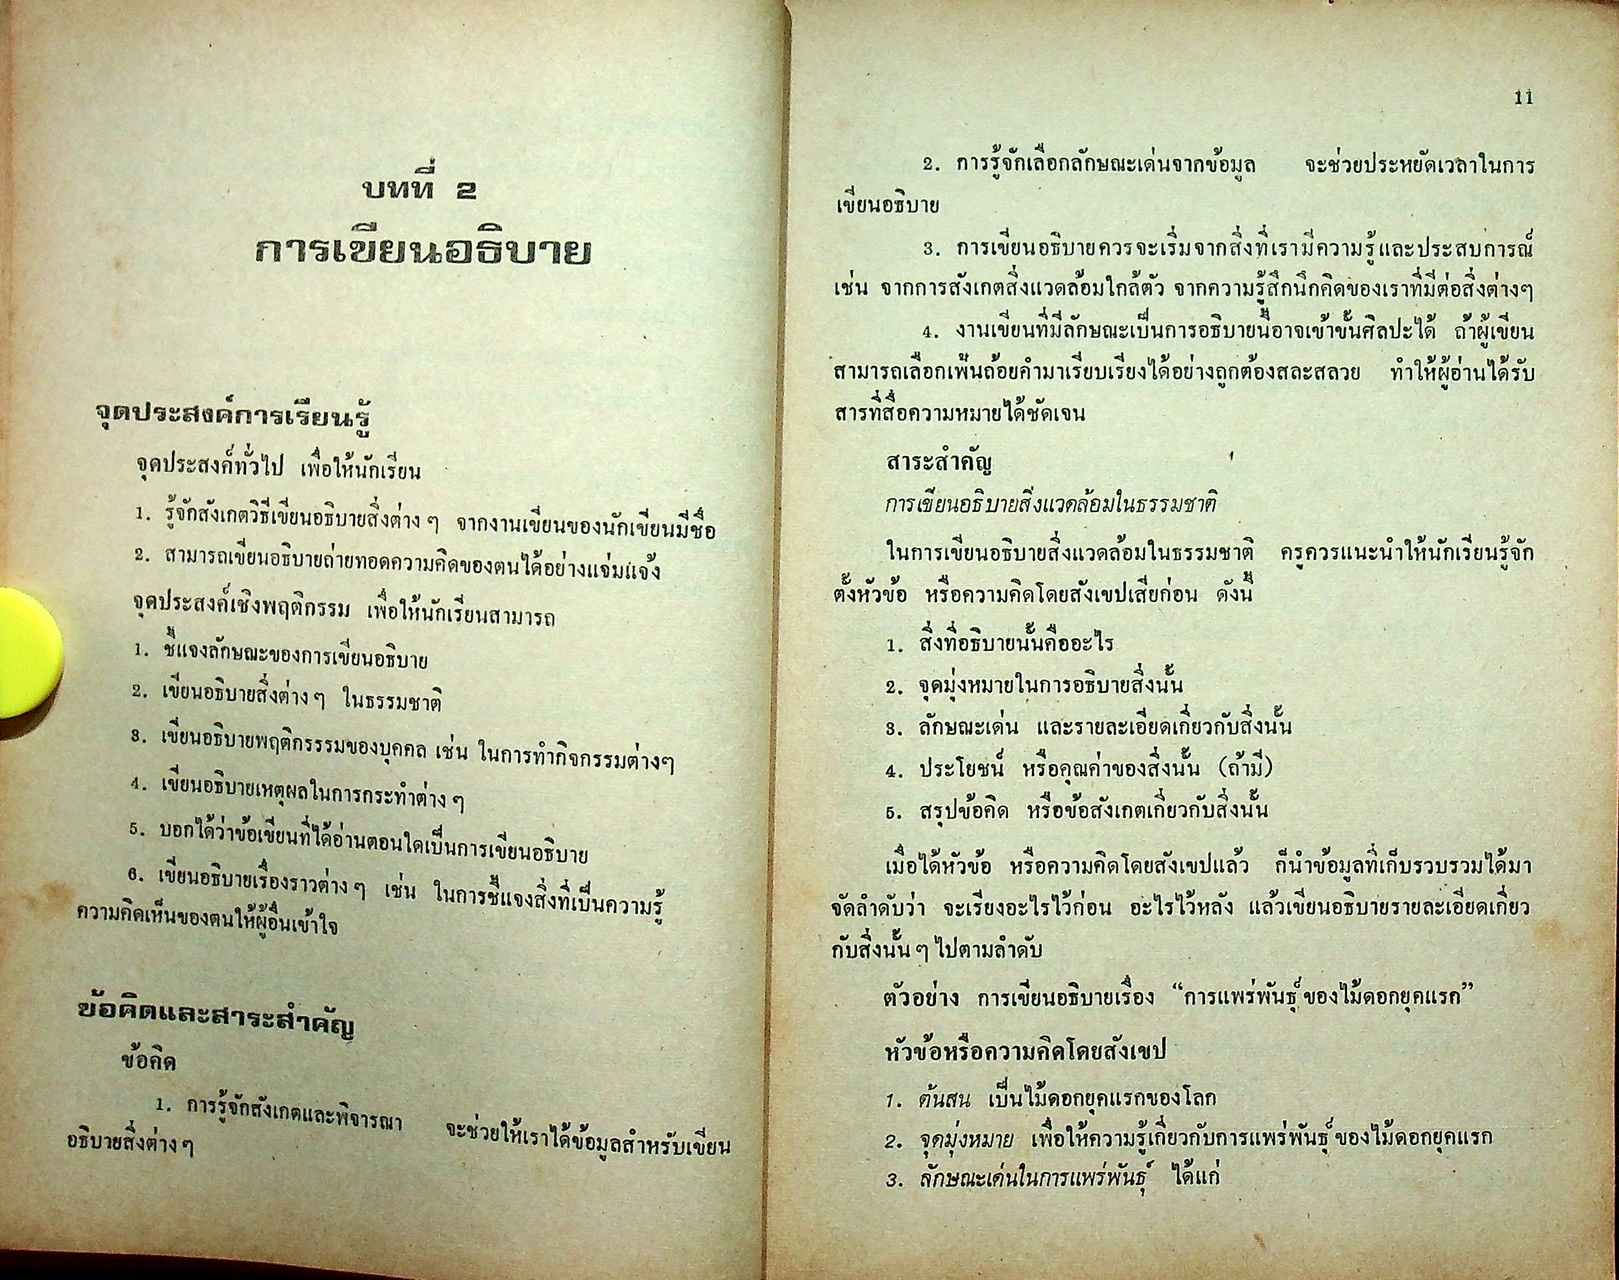 บทที่ 2
การเขียนอธิบาย
จุดประสงค์การเรียนรู้
จุดประสงค์ทั่วไป เพื่อให้นักเรียน
1. รู้จักสังเกตวิธีเขียนอธิบายสิ่งต่างๆ จากงานเขียนของนักเขียนมีชื่อ
2. สามารถเขียนอธิบายถ่ายทอดความคิดของตนได้อย่างแจ่มแจ้ง
จุดประสงค์เชิงพฤติกรรม เพื่อให้นักเรียนสามารถ
1. ชี้แจงลักษณะของการเขียนอธิบาย
2. เขียนอธิบายสิ่งต่างๆ ในธรรมชาติ
3. เขียนอธิบายพฤติกรรรมของบุคคล เช่น ในการทำกิจกรรมต่างๆ
4. เขียนอธิบายเหตุผลในการกระทำต่างๆ
5. บอกได้ว่าข้อเขียนที่ได้อ่านตอนใดเป็นการเขียนอธิบาย
6. เขียนอธิบายเรื่องราวต่างๆ เช่น ในการชี้แจงสิ่งที่เป็นความรู้
ความคิดเห็นของตนให้ผู้อื่นเข้าใจ
ข้อคิดและสาระสำคัญ
ข้อคิด
1. การรู้จักสังเกตและพิจารณา จะช่วยให้เราได้ข้อมูลสำหรับเขียน
อธิบายสิ่งต่างๆ
11
2. การรู้จักเลือกลักษณะเด่นจากข้อมูล จะช่วยประหยัดเวลาในการ
เขียนอธิบาย
3. การเขียนอธิบายควรจะเริ่มจากสิ่งที่เรามีความรู้และประสบการณ์
เช่น จากการสังเกตสิ่งแวดล้อมใกล้ตัว จากความรู้สึกนึกคิดของเราที่มีต่อสิ่งต่างๆ
4. งานเขียนที่มีลักษณะเป็นการอธิบายนี้อาจเข้าขั้นศิลปะได้ ถ้าผู้เขียน
สามารถเลือกเฟ้นถ้อยคำมาเรียบเรียงได้อย่างถูกต้องสละสลวย ทำให้ผู้อ่านได้รับ
สารที่สื่อความหมายได้ชัดเจน
สาระสำคัญ
การเขียนอธิบายสิ่งแวดล้อมในธรรมชาติ
ในการเขียนอธิบายสิ่งแวดล้อมในธรรมชาติ ครูควรแนะนำให้นักเรียนรู้จัก
ตั้งหัวข้อ หรือความคิดโดยสังเขปเสียก่อน ดังนี้
1. สิ่งที่อธิบายนั้นคืออะไร
2. จุดมุ่งหมายในการอธิบายสิ่งนั้น
3. ลักษณะเด่น และรายละเอียดเกี่ยวกับสิ่งนั้น
4. ประโยชน์ หรือคุณค่าของสิ่งนั้น (ถ้ามี)
5. สรุปข้อคิด หรือข้อสังเกตเกี่ยวกับสิ่งนั้น
เมื่อได้หัวข้อ หรือความคิดโดยสังเขปแล้ว ก็นำข้อมูลที่เก็บรวบรวมได้มา
จัดลำดับว่า จะเรียงอะไรไว้ก่อน อะไรไว้หลัง แล้วเขียนอธิบายรายละเอียดเกี่ยว
กับสิ่งนั้นๆ ไปตามลำดับ
ตัวอย่าง การเขียนอธิบายเรื่อง “การแพร่พันธุ์ของไม้ดอกยุคแรก”
หัวข้อหรือความคิดโดยสังเขป
1. ต้นสน เป็นไม้ดอกยุคแรกของโลก
2. จุดมุ่งหมาย เพื่อให้ความรู้เกี่ยวกับการแพร่พันธุ์ของไม้ดอกยุคแรก
3. ลักษณะเด่นในการแพร่พันธุ์ ได้แก่